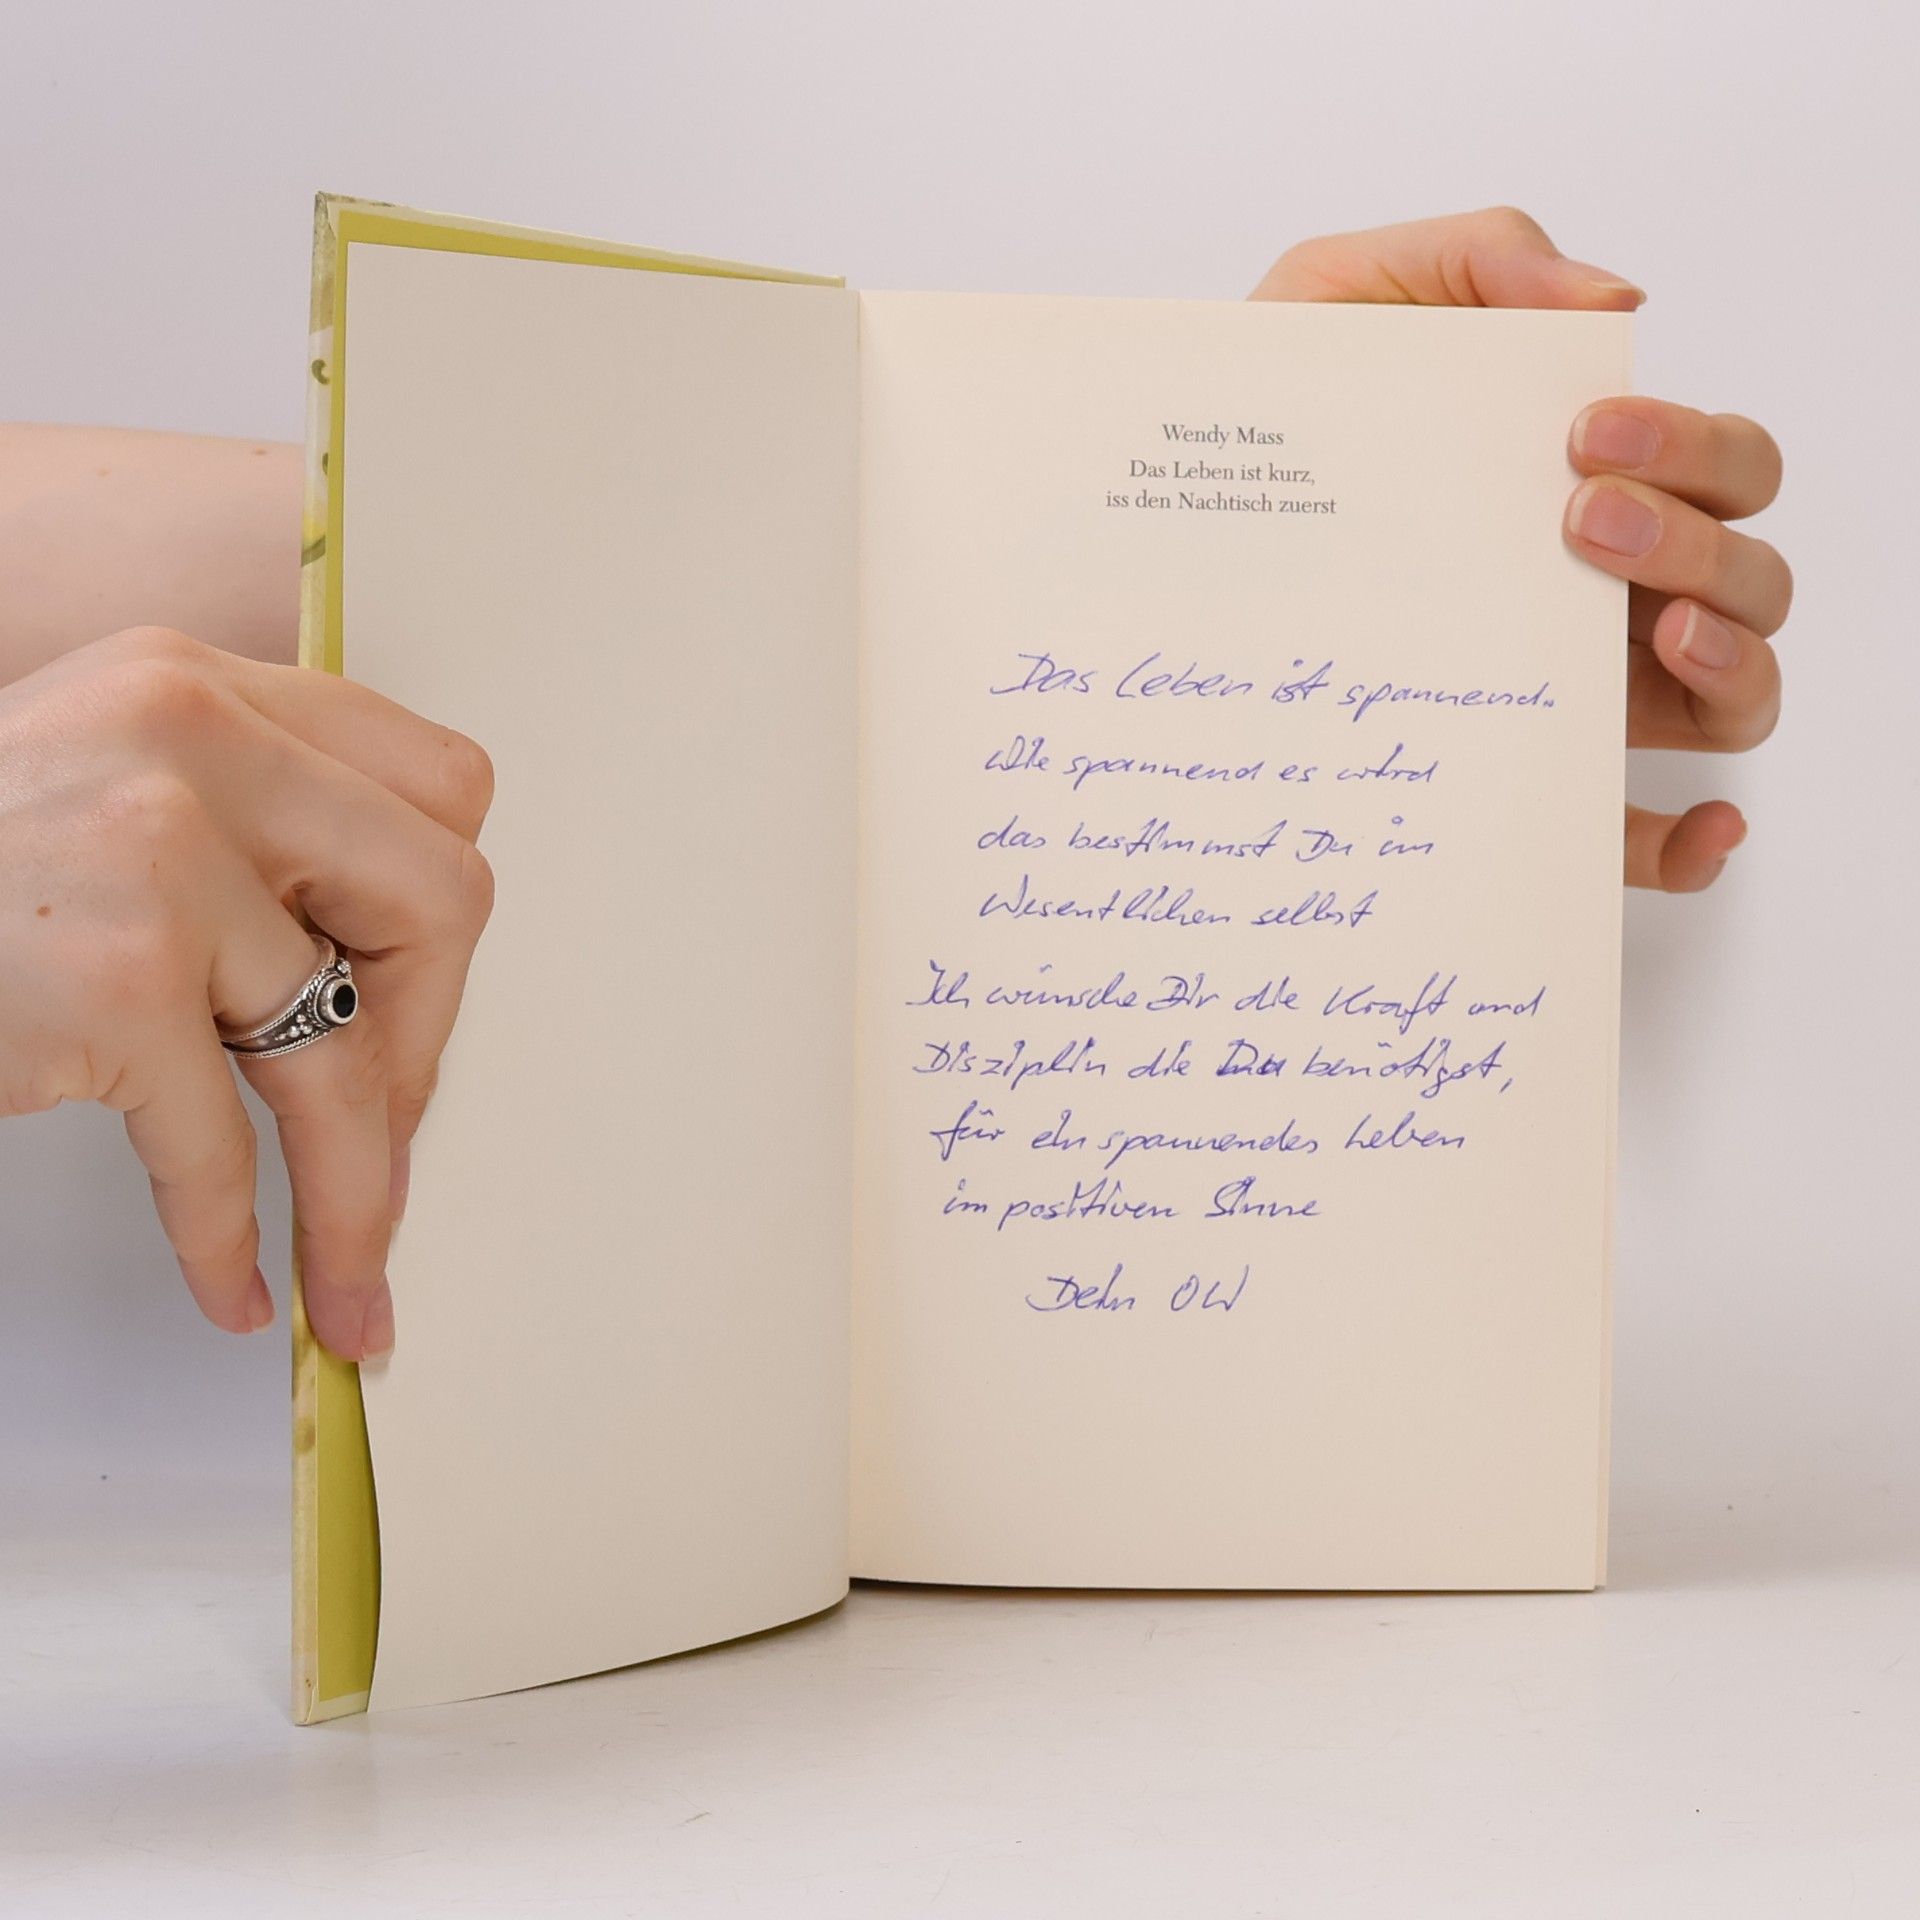 Wendy Mass
Das Leben ist kurz,
iss den Nachtisch zuerst
Das Leben ist spannend.
Wie spannend es wird
das bestimmst Du im
Wesentlichen selbst
Ich wünsche Dir die Kraft und
Disziplin die Du benötigst,
für ein spannendes Leben
im positiven Sinne
Dein OW